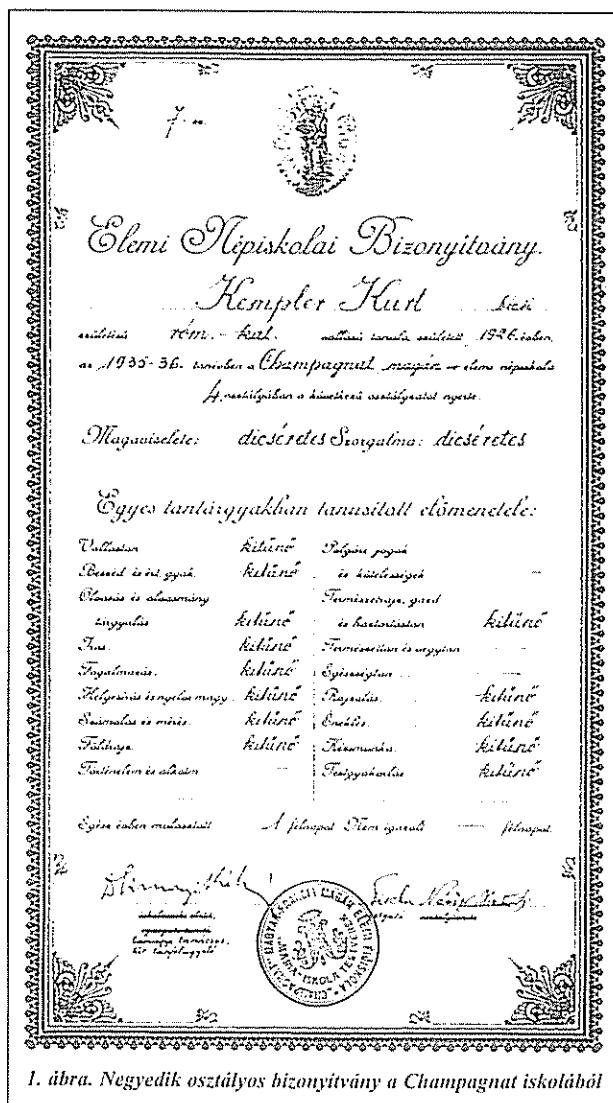 7. sz.
Elemi Népiskolai Bizonyítvány.
Kempler Kurt bécsi
születésű róm.-kat. vallású tanuló, született 1926. évben,
az 1935-36. tanévben a Champagnat magán elemi népiskola
4. osztályában a következő osztályzatot nyerte.
Magaviselete: dicséretes Szorgalma: dicséretes
Egyes tantárgyakban tanusított előmenetele:
Vallástan kitűnő
Beszéd és ért. gyak. kitűnő
Olvasás és olvasmány
tárgyalás kitűnő
Írás kitűnő
Fogalmazás. kitűnő
Helyesírás és nyelvt. magy. kitűnő
Számolás és mérés. kitűnő
Földrajz kitűnő
Történelem és alkotm. —
Polgári jogok
és kötelességek —
Természetrajz, gazd.
és háztartástan kitűnő
Természettan és vegytan —
Egészségtan —
Rajzolás. kitűnő
Éneklés. kitűnő
Kézimunka. kitűnő
Testgyakorlás kitűnő
Egész évben mulasztott 1 félnapot Nem igazolt — félnapot.
1. ábra. Negyedik osztályos bizonyítvány a Champagnat iskolából